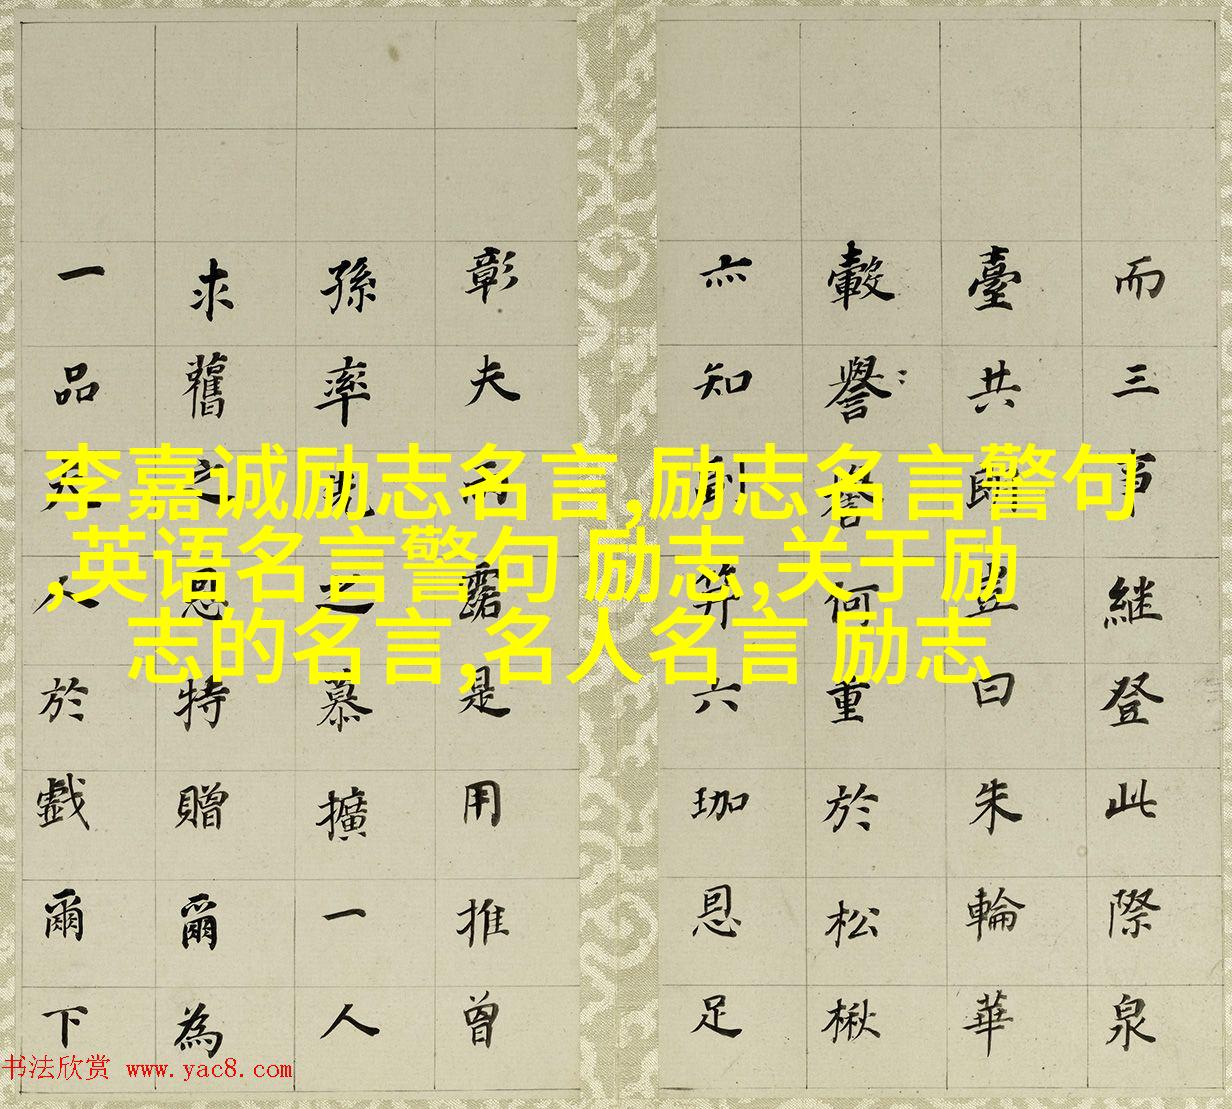 李嘉诚励志名言,励志名言警句
,英语名言警句 励志,关于励
志的名言,名人名言 励志
而三事継登此際泉
臺共歸豈曰朱輪華
轂譽何重於松楸
亦知副笄六珈恩足
彰夫雨露是用推曾
孫率先之慕擴一人
求舊之恩特贈爾為
一品夫人於戲爾下
书法欣赏 www.yac8.com